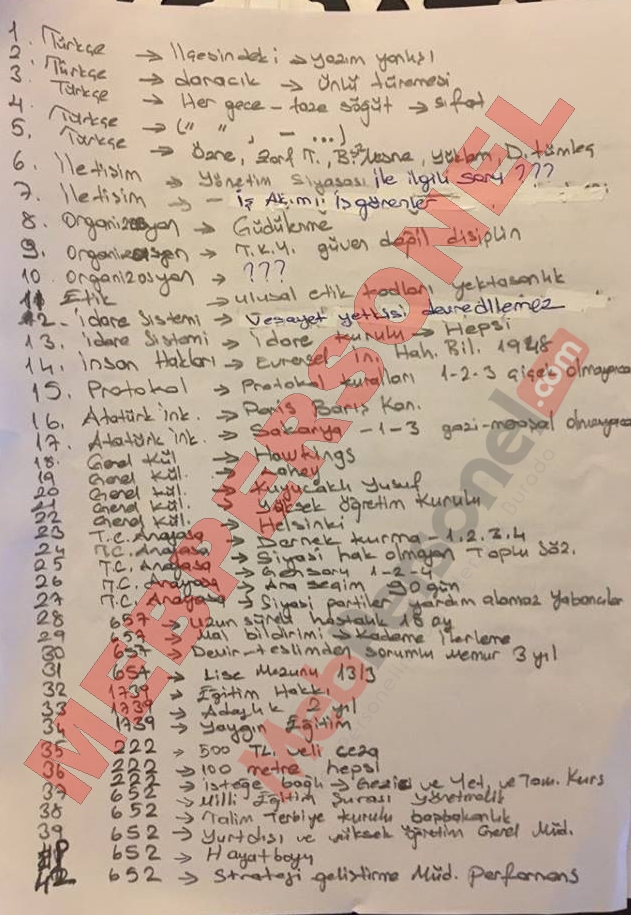 1. Türkçe → İlçesindeki → yazım yanlışı
2. Türkçe → daracık → ünlü türemesi
3. Türkçe → Her gece - taze söğüt → sıfat
4. Türkçe → (" " , - ...)
5. Türkçe → Özne, Zarf T., B.siz Nesne, Yüklem, D. tümleç
6. İletişim → Yönetim Siyasası ile ilgili soru ???
7. İletişim → - İş Akımlı İşgörenler
8. Organizasyon → Güdüleme
9. Organizasyon → T.K.Y. güven değil disiplin
10. Organizasyon → ???
11 Etik → ulusal etik kodları yektasanlık
12- İdare Sistemi → Vesayet yetkisi devredilemez
13. İdare Sistemi → İdare kurulu → Hepsi
14. İnsan Hakları → Evrensel in. Hak. Bil. 1948
15. Protokol → Protokol kuralları 1-2-3 çiçek olmayacak
16. Atatürk ink. → Paris Barış Kon.
17. Atatürk ink. → Sakarya -1-3 gazi-mareşal olmayacak
18. Genel Kül → Hawkings
19 Genel Kül. → Lahey
20 Genel Kül. → Kuyucaklı Yusuf
21 Genel Kül. → Yüksek Öğretim Kurulu
22 Genel Kül. → Helsinki
23 T.C. Anayasa → Dernek kurma 1.2.3.4
24 T.C. Anayasa → Siyasi hak olmayan Toplu Söz.
25 T.C. Anayasa → Gensoru 1-2-4
26 T.C. Anayasa → Ara seçim 90 gün
27 T.C. Anayasa → Siyasi partiler yardım alamaz yabancılar
28 657 → uzun süreli hastalık 18 ay
29 657 → Mal bildirimi → Kademe ilerleme
30 657 → Devir-teslimden sorumlu memur 3 yıl
31 657 → Lise Mezunu 13/3
32 1739 → Eğitim Hakkı
33 1739 → Adaylık 2 yıl
34 1739 → Yaygın Eğitim
35 222 → 500 TL. veli ceza
36 222 → 100 metre hepsi
37 222 → isteğe bağlı → Gezici ve Yet, ve Tam. Kurs
38 652 → Milli Eğitim Şurası yönetmelik
39 652 → Talim Terbiye kurulu başbakanlık
652 → Yurtdışı ve yüksek öğretim Genel Müd.
652 → Hayatboyu
42 652 → Strateji geliştirme Müd. performans
MEBPERSONEL
MebPersonel.com
Burada